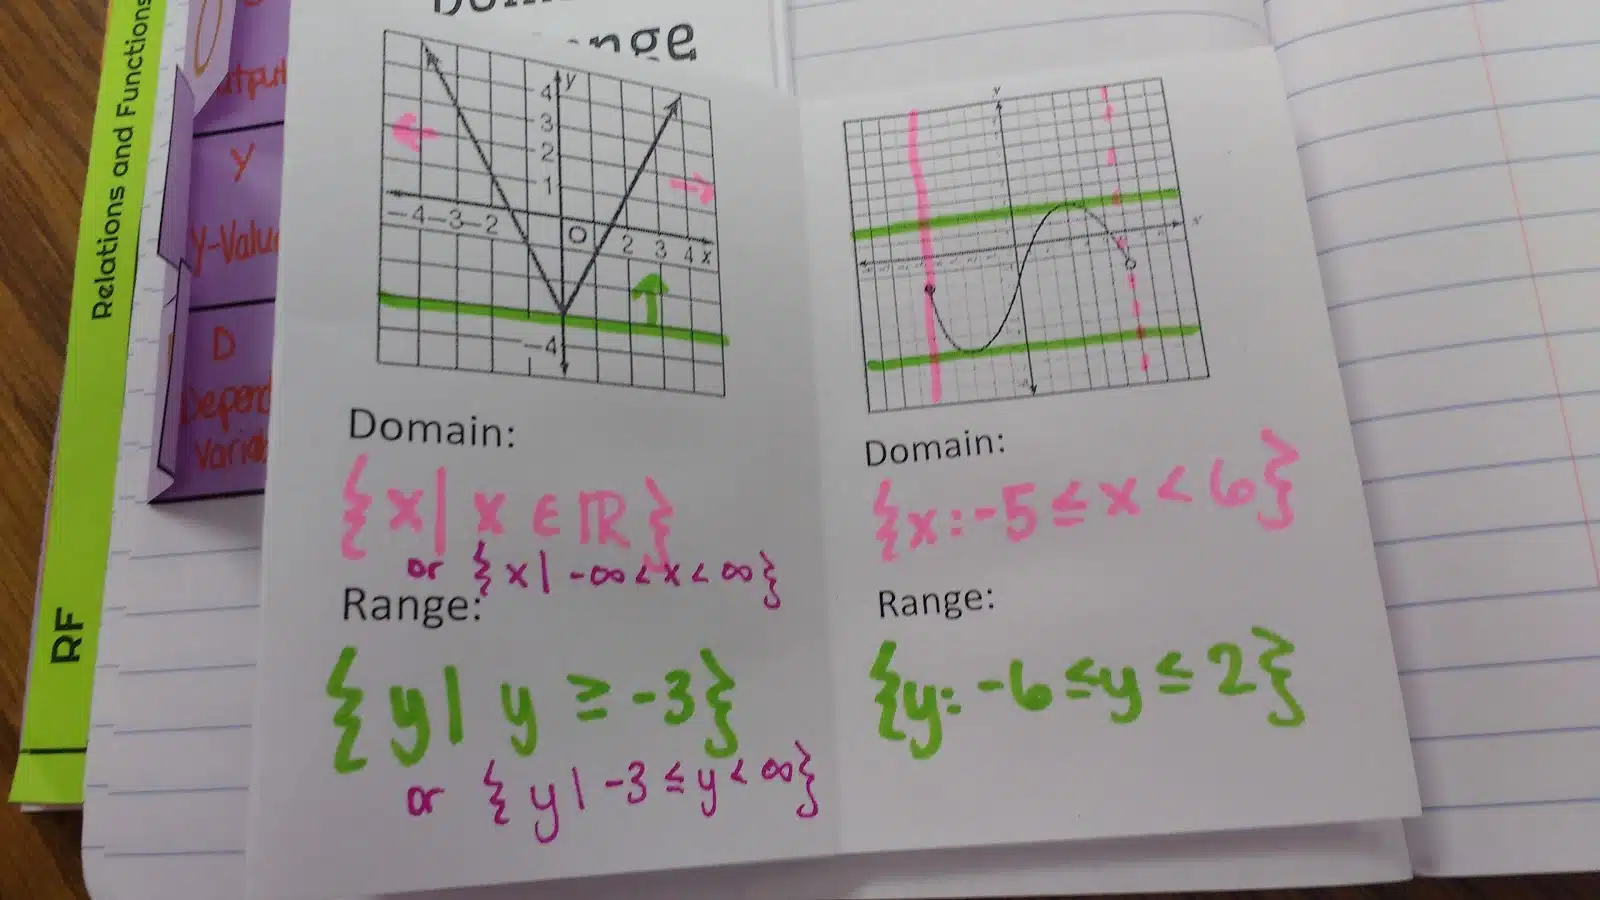 Relations and Functions
RF
Y
Y-Value
D
nge
y
4
3
2
1
-4 -3 -2
O
2 3 4 x
-4
Domain:
{x| x ∈ ℝ}
or {x| -∞ < x < ∞}
Range:
{y| y ≥ -3}
or {y| -3 ≤ y < ∞}
Domain:
{x: -5 ≤ x < 6}
Range:
{y: -6 ≤ y ≤ 2}